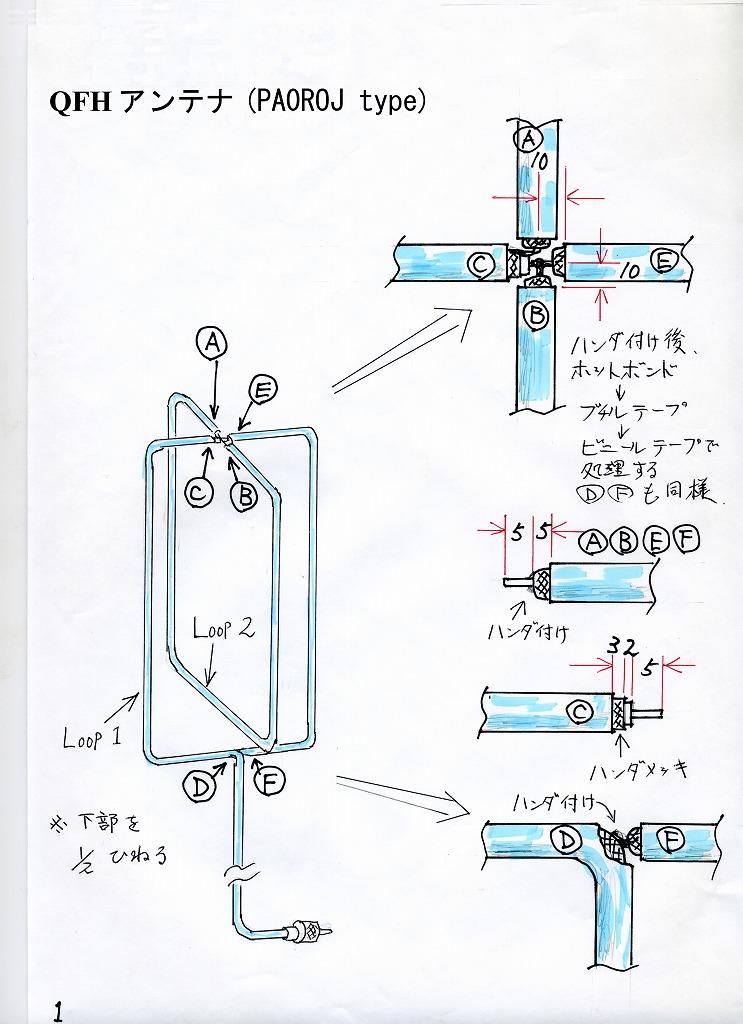 QFH アンテナ (PA0ROJ type)
A
10
C
E
10
B
ハンダ付け後、
ホットボンド
↓
ブチルテープ
↓
ビニールテープで
処理する
D F も同様
A
E
C
B
5 5 A B E F
ハンダ付け
Loop 2
3 2 5
C
Loop 1
ハンダメッキ
D F
ハンダ付け
D F
※ 下部を
1/2 ひねる
1